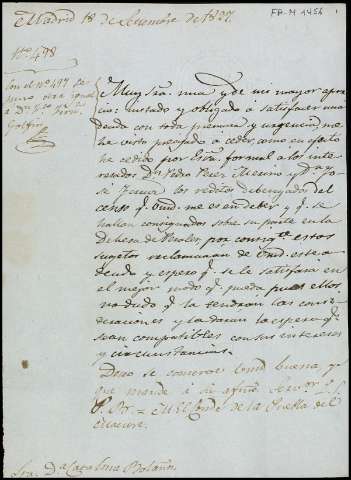 Madrid 18 de Diciembre de 1827.
FP-M 1456
Nº 498
Con el nº 497 se
Golfin
Muy Sra. mia y de mi mayor apre
cio: instado y obligado á satisfacer una
deuda con toda premura y urgencia, me
he visto precisado á ceder como en efecto
he cedido por Escra. formal a los inte
resados Dn. Pedro Perez Moreno y Dn.
los reditos debengados del
censo q. Vmd. me es en deber y q. se
hallan consignados sobre su parte en la
Dehesa de por consigte. estos
sugetos reclamaran de Vmd. esta
deuda y espero q. se le satisfará en
el mejor modo q. pueda pues ellos
no dudo q. la tendran las consi
deraciones y la daran la espera q.
sean compatibles con sus intereses
y circunstancias.
Deseo se conserve Vmd. buena, y
que mande á su afmo. Servor. Q. S.
P. B. = El Conde de la Puebla del
Maestre.
Sra. Da. Catalina Bolaños